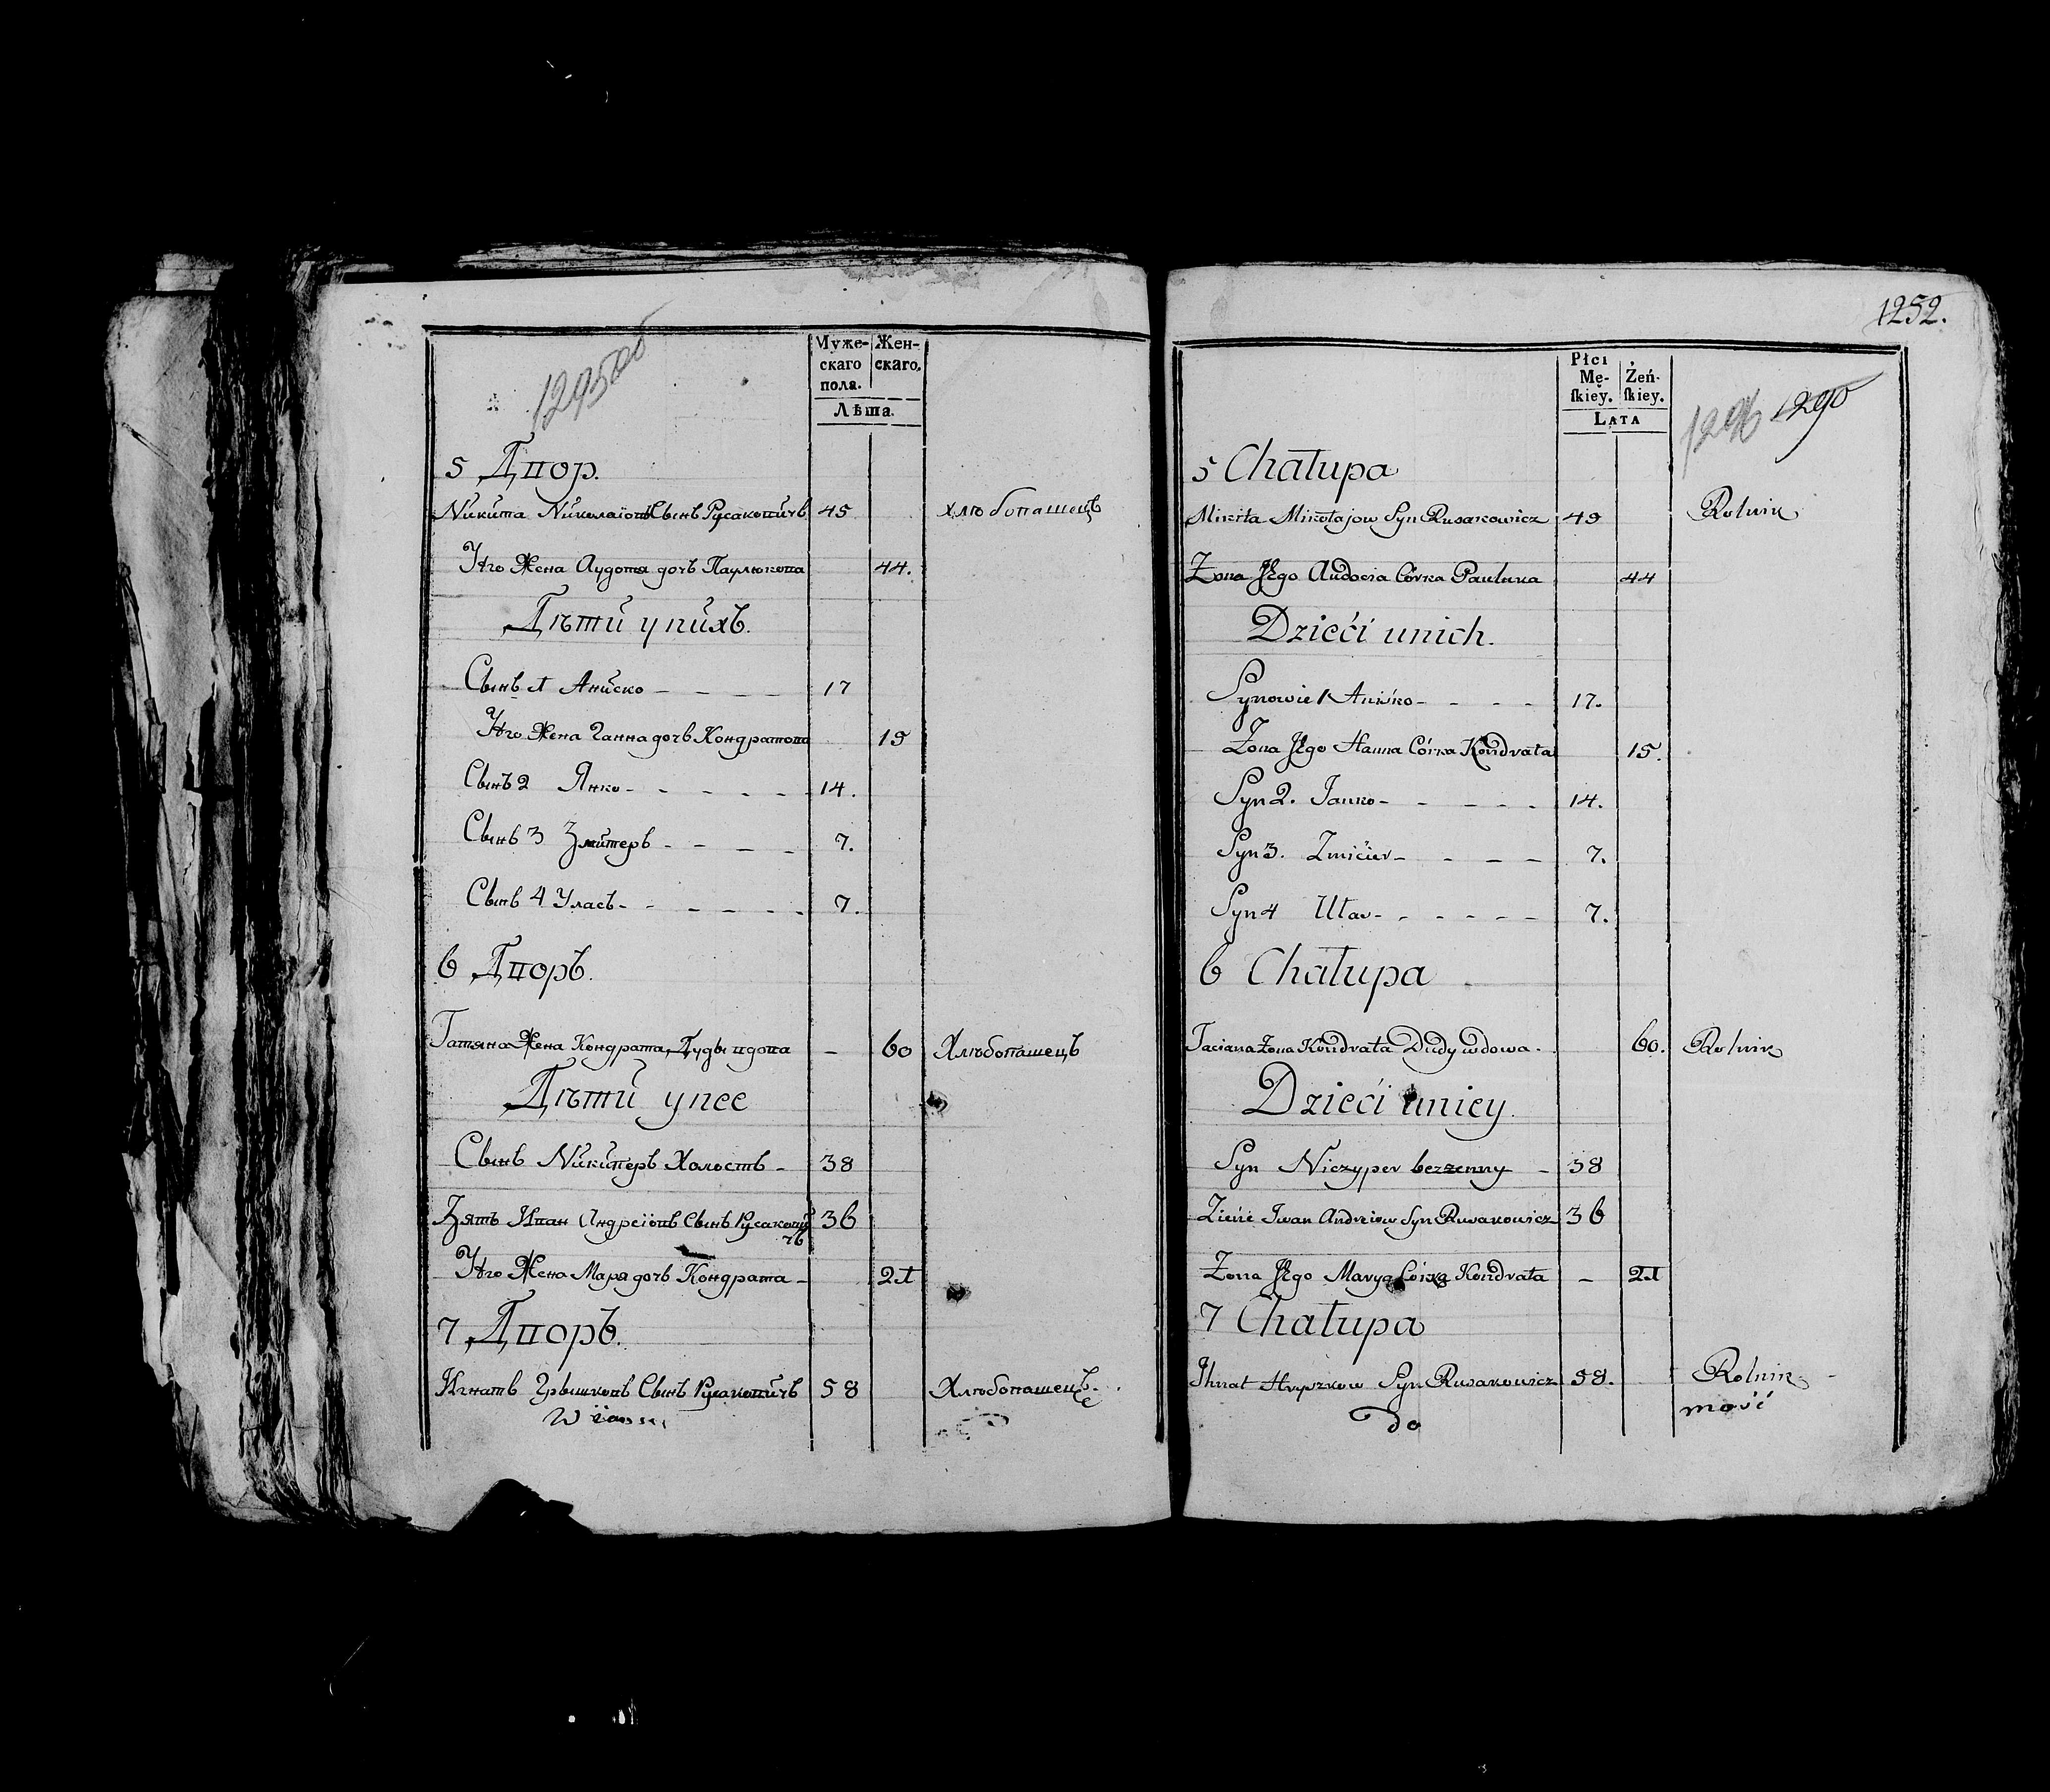 1295
Муже-
скаго
пола.
Жен-
скаго.
Лѣта.
5 Дворъ.
Никита Николаіовъ Сынъ Русаковичъ 45 Хлюбопашецъ
Его Жена Аудотя дочь Паулюкова 44.
Дѣти у нихъ.
Сынъ 1 Аниско - - - - 17
Его Жена Ганна дочь Кондратова 15
Сынъ 2 Янко - - - - - - 14.
Сынъ 3 Змитеръ - - - - 7.
Сынъ 4 Уласъ - - - - - - 7.
6 Дворъ.
Татяна Жена Кондрата Дуды вдова - 60 Хлюбопашецъ
Дѣти у нее
Сынъ Никиперъ Холостъ - 38
Зять Иван Андреіовъ Сынъ Русакови
чъ 36
Его Жена Маря дочь Кондрата - 21
7 Дворъ.
Игнатъ Грышковъ Сынъ Русаковичъ 58 Хлюбопашецъ.
1252.
Płci
Mę-
skiey.
Żeń-
skiey.
Lata
1296 1290
5 Chałupa
Mikita Mikołajow Syn Rusakowicz 45 Rolnik
Zona Jego Audocia Córka Pauluka 44
Dzieći unich.
Synowie 1 Aniśko - - - - 17.
Zona Jego Hanna Córka Kondrata 15.
Syn 2. Janko - - - - - 14.
Syn 3. Zmićier - - - - 7.
Syn 4 Ułas - - - - - - 7.
6 Chałupa
Taciana Zona Kondrata Dudy wdowa. 60. Rolnik
Dzieći uniey.
Syn Niczyper bezzenny - 38
Zieńć Iwan Andreiow Syn Rusakowicz 36
Zona Jego Marya Córka Kondrata - 21
7 Chałupa
Ihnat Hryszkow Syn Rusakowicz 58. Rolnik
do mość